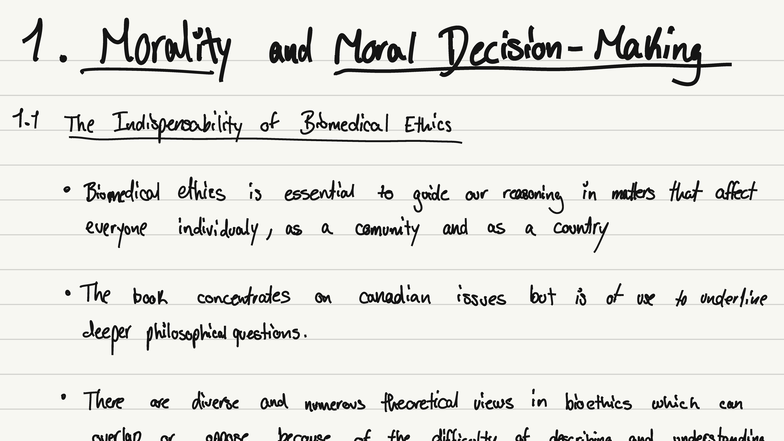 1. Morality and Moral Decision-Making
1.1 The Indispensability of Biomedical Ethics
• Biomedical ethics is essential to guide our reasoning in matters that affect
everyone individualy, as a comunity and as a country
• The book concentrates on canadian issues but is of use to underline
deeper philosophical questions.
• There are diverse and numerous theoretical views in bioethics which can
overlap or oppose because of the difficulty of describing and understanding